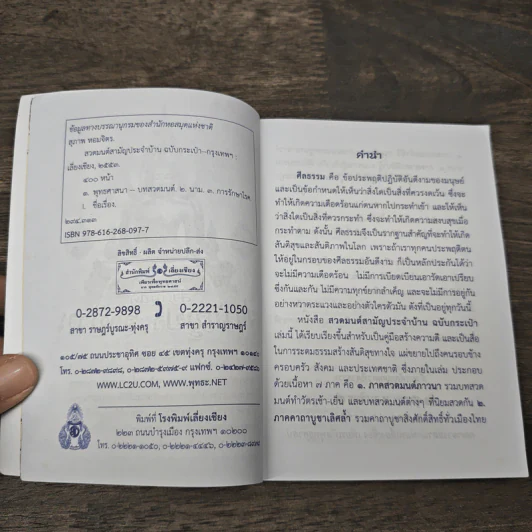 ข้อมูลทางบรรณานุกรมของสำนักหอสมุดแห่งชาติ
สุภาพ หอมจิตร.
สวดมนต์สามัญประจำบ้าน ฉบับกระเป๋า--กรุงเทพฯ
เลี่ยงเชียง, ๒๕๕๓.
๔๐๐ หน้า
๑. พุทธศาสนา -- บทสวดมนต์. ๒. นาม. ๓. การรักษาโรค
I. ชื่อเรื่อง.
๒๙๔.๓๑๓
ISBN 978-616-268-097-7
ลิขสิทธิ์ - ผลิต จำหน่ายปลีก-ส่ง
สำนักพิมพ์ เลี่ยงเชียง
เพียรเพื่อพุทธศาสน์
0-2872-9898
0-2221-1050
สาขา ราษฎร์บูรณะ-ทุ่งครุ
สาขา สำราญราษฎร์
๑๐๕/๗๕ ถนนประชาอุทิศ ซอย ๔๕ เขตทุ่งครุ กรุงเทพฯ
WWW.LC2U.COM WWW.พุทธะ.NET
พิมพ์ที่ โรงพิมพ์เลี่ยงเชียง
๒๒๓ ถนนบำรุงเมือง กรุงเทพฯ ๑๐๒๐๐
คำนำ
ศีลธรรม คือ ข้อประพฤติปฏิบัติอันดีงามของมนุษย์
และเป็นข้อกำหนดให้เห็นว่าสิ่งใดเป็นสิ่งที่ควรงดเว้น ซึ่งจะ
ทำให้เกิดความเดือดร้อนแก่ตนหากไปกระทำเข้า และให้เห็น
ว่าสิ่งใดเป็นสิ่งที่ควรกระทำ ซึ่งจะทำให้เกิดความสงบสุขเมื่อ
กระทำตาม ดังนั้น ศีลธรรมจึงเป็นรากฐานสำคัญที่จะทำให้เกิด
สันติสุขและสันติภาพในโลก เพราะถ้าเราทุกคนประพฤติตน
ให้อยู่ในกรอบของศีลธรรมอันดีงาม ก็เป็นหลักประกันได้ว่า
จะไม่มีความเดือดร้อน ไม่มีการเบียดเบียนเอารัดเอาเปรียบ
ซึ่งกันและกัน ไม่มีความทุกข์ยากลำเค็ญ และจะไม่มีการอยู่กัน
อย่างหวาดระแวงและอย่างตัวใครตัวมัน ดังที่เป็นอยู่ทุกวันนี้
หนังสือ สวดมนต์สามัญประจำบ้าน ฉบับกระเป๋า
เล่มนี้ ได้เรียบเรียงขึ้นสำหรับเป็นคู่มือสร้างความดี และเป็นสื่อ
ในการระดมธรรมสร้างสันติสุขทางใจ แผ่ขยายไปถึงคนรอบข้าง
ครอบครัว สังคม และประเทศชาติ ซึ่งภายในเล่ม ประกอบ
ด้วยเนื้อหา ๗ ภาค คือ ๑. ภาคสวดมนต์ภาวนา รวมบทสวด
มนต์ทำวัตรเช้า-เย็น และบทสวดมนต์ต่างๆ ที่นิยมสวดกัน ๒.
ภาคคาถาบูชาเลิศล้ำ รวมคาถาบูชาสิ่งศักดิ์สิทธิ์ทั่วเมืองไทย